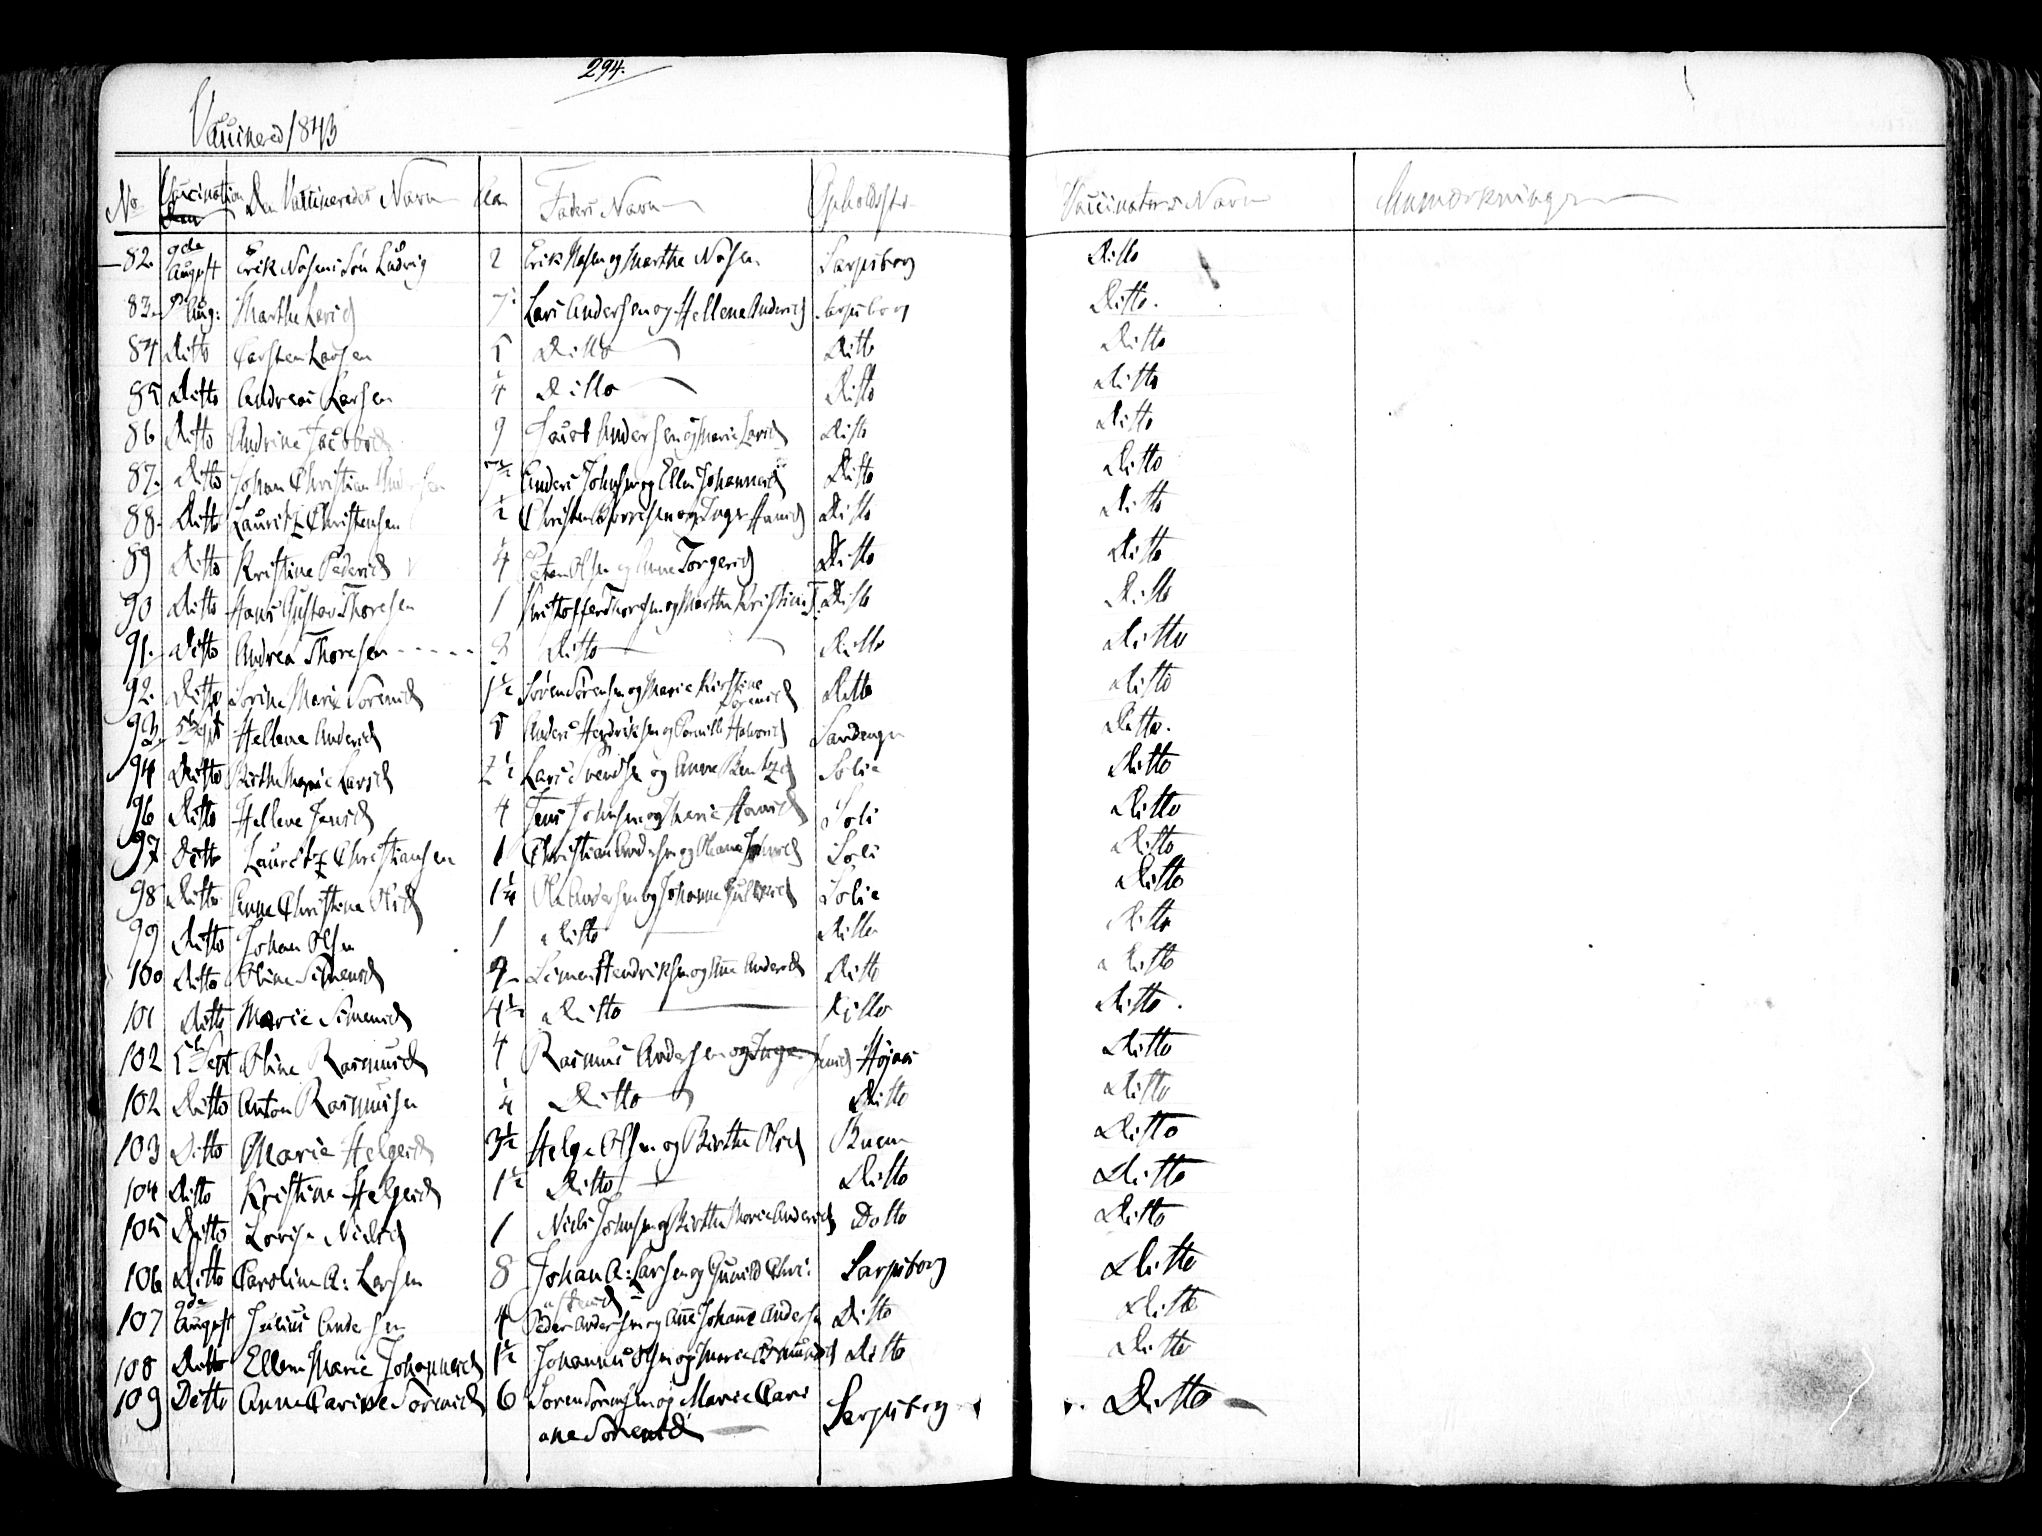 294.
Vaccinered 1843
No Vaccination Den Vaccineredes Navn Faders Navn Opholdsst. Vaccinators Navn Anmærkninger
82. 9de August Erik Nilsens Søn Ludvig 2 Erik og Marthe Sarpsborg Ditto
83. 9de Aug: Marthe Larsd 7 Lars Andersen og Hellene Andersd Sarpsborg Ditto.
84 Ditto Carsten Larsen 5 Ditto Ditto Ditto
85 Ditto Andreas Larsen ¼ Ditto Ditto Ditto
86 Ditto Andrine Jacobsd 9 Jacob Andersen og Marie Larsd Ditto Ditto
87. Ditto Johan Christian Andersen 7½ Anders Johnsen og Ellen Johannesd Ditto Ditto
88. Ditto Lauritz Christensen ½ Christen og Inger Hansd Ditto Ditto
89 Ditto Kristine Pedersd ¼ Peter Olsen og Anne Torgersd Ditto Ditto
90 Ditto Hans Gustav Thoresen 1 Kristoffer Thoresen og Marthe Kristine T. Ditto Ditto
91. Ditto Andrea Thoresen - - - - - 3 Ditto Ditto Ditto
92. Ditto Sorine Marie Sørensd 1½ Søren Sørensen og Marie Kirstine Sørensd Ditto Ditto
93 5te Sept Hellene Andersd 5 Anders Hendriksen og Pernille Halvorsd Sandenge Ditto.
94 Ditto Birthe Marie Larsd 2½ Lars Svendsen og Anne Bentzd Solie Ditto
96 Ditto Hellene Jensd 4 Jens Johnsen og Marie Hansd Soli Ditto
97 Ditto Lauritz Christiansen 1 Christian Andersen og Oleana Soli Ditto
98 Ditto Anne Christine Olsd 1¼ Ole Andersen og Johanne Solie Ditto
99 Ditto Johan Olsen 1 Ditto Ditto Ditto
100 Ditto Oline Simensd 9 Simen Hendriksen og Anne Andersd Ditto Ditto
101 Ditto Marie Simensd 4½ Ditto Ditto Ditto.
102 5te Sept Oline Rasmusd 4 Rasmus Andersen og Inger Jensd Højaas Ditto
102 Ditto Anton Rasmussen ¼ Ditto Ditto Ditto
103 Ditto Marie Helgesd 3½ Helge Olsen og Birthe Olsd Ditto
104 Ditto Kristine Helgesd 1½ Ditto Ditto Ditto
105 Ditto Lovise Nielsd 1 Niels Johnsen og Birthe Marie Andersd Ditto Ditto
106 Ditto Caroline A: Larsen 8 Johan A: Larsen og Gunild Chri- Sarpsborg Ditto
stensd
107 9de August Julius Andersen 4 Peder Andersen og Anne Johanne Andersen Ditto Ditto
108 Ditto Ellen Marie Johannesd 1½ Johannes Olsen og Marie Ditto Ditto
109 Ditto Anne Carine Sørensd 6 Søren Sørensen og Marie Cari Sarpsborg Ditto
ane Sørensd